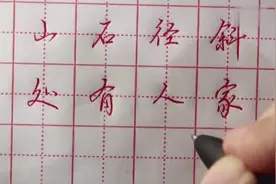 山石径斜
处有人家